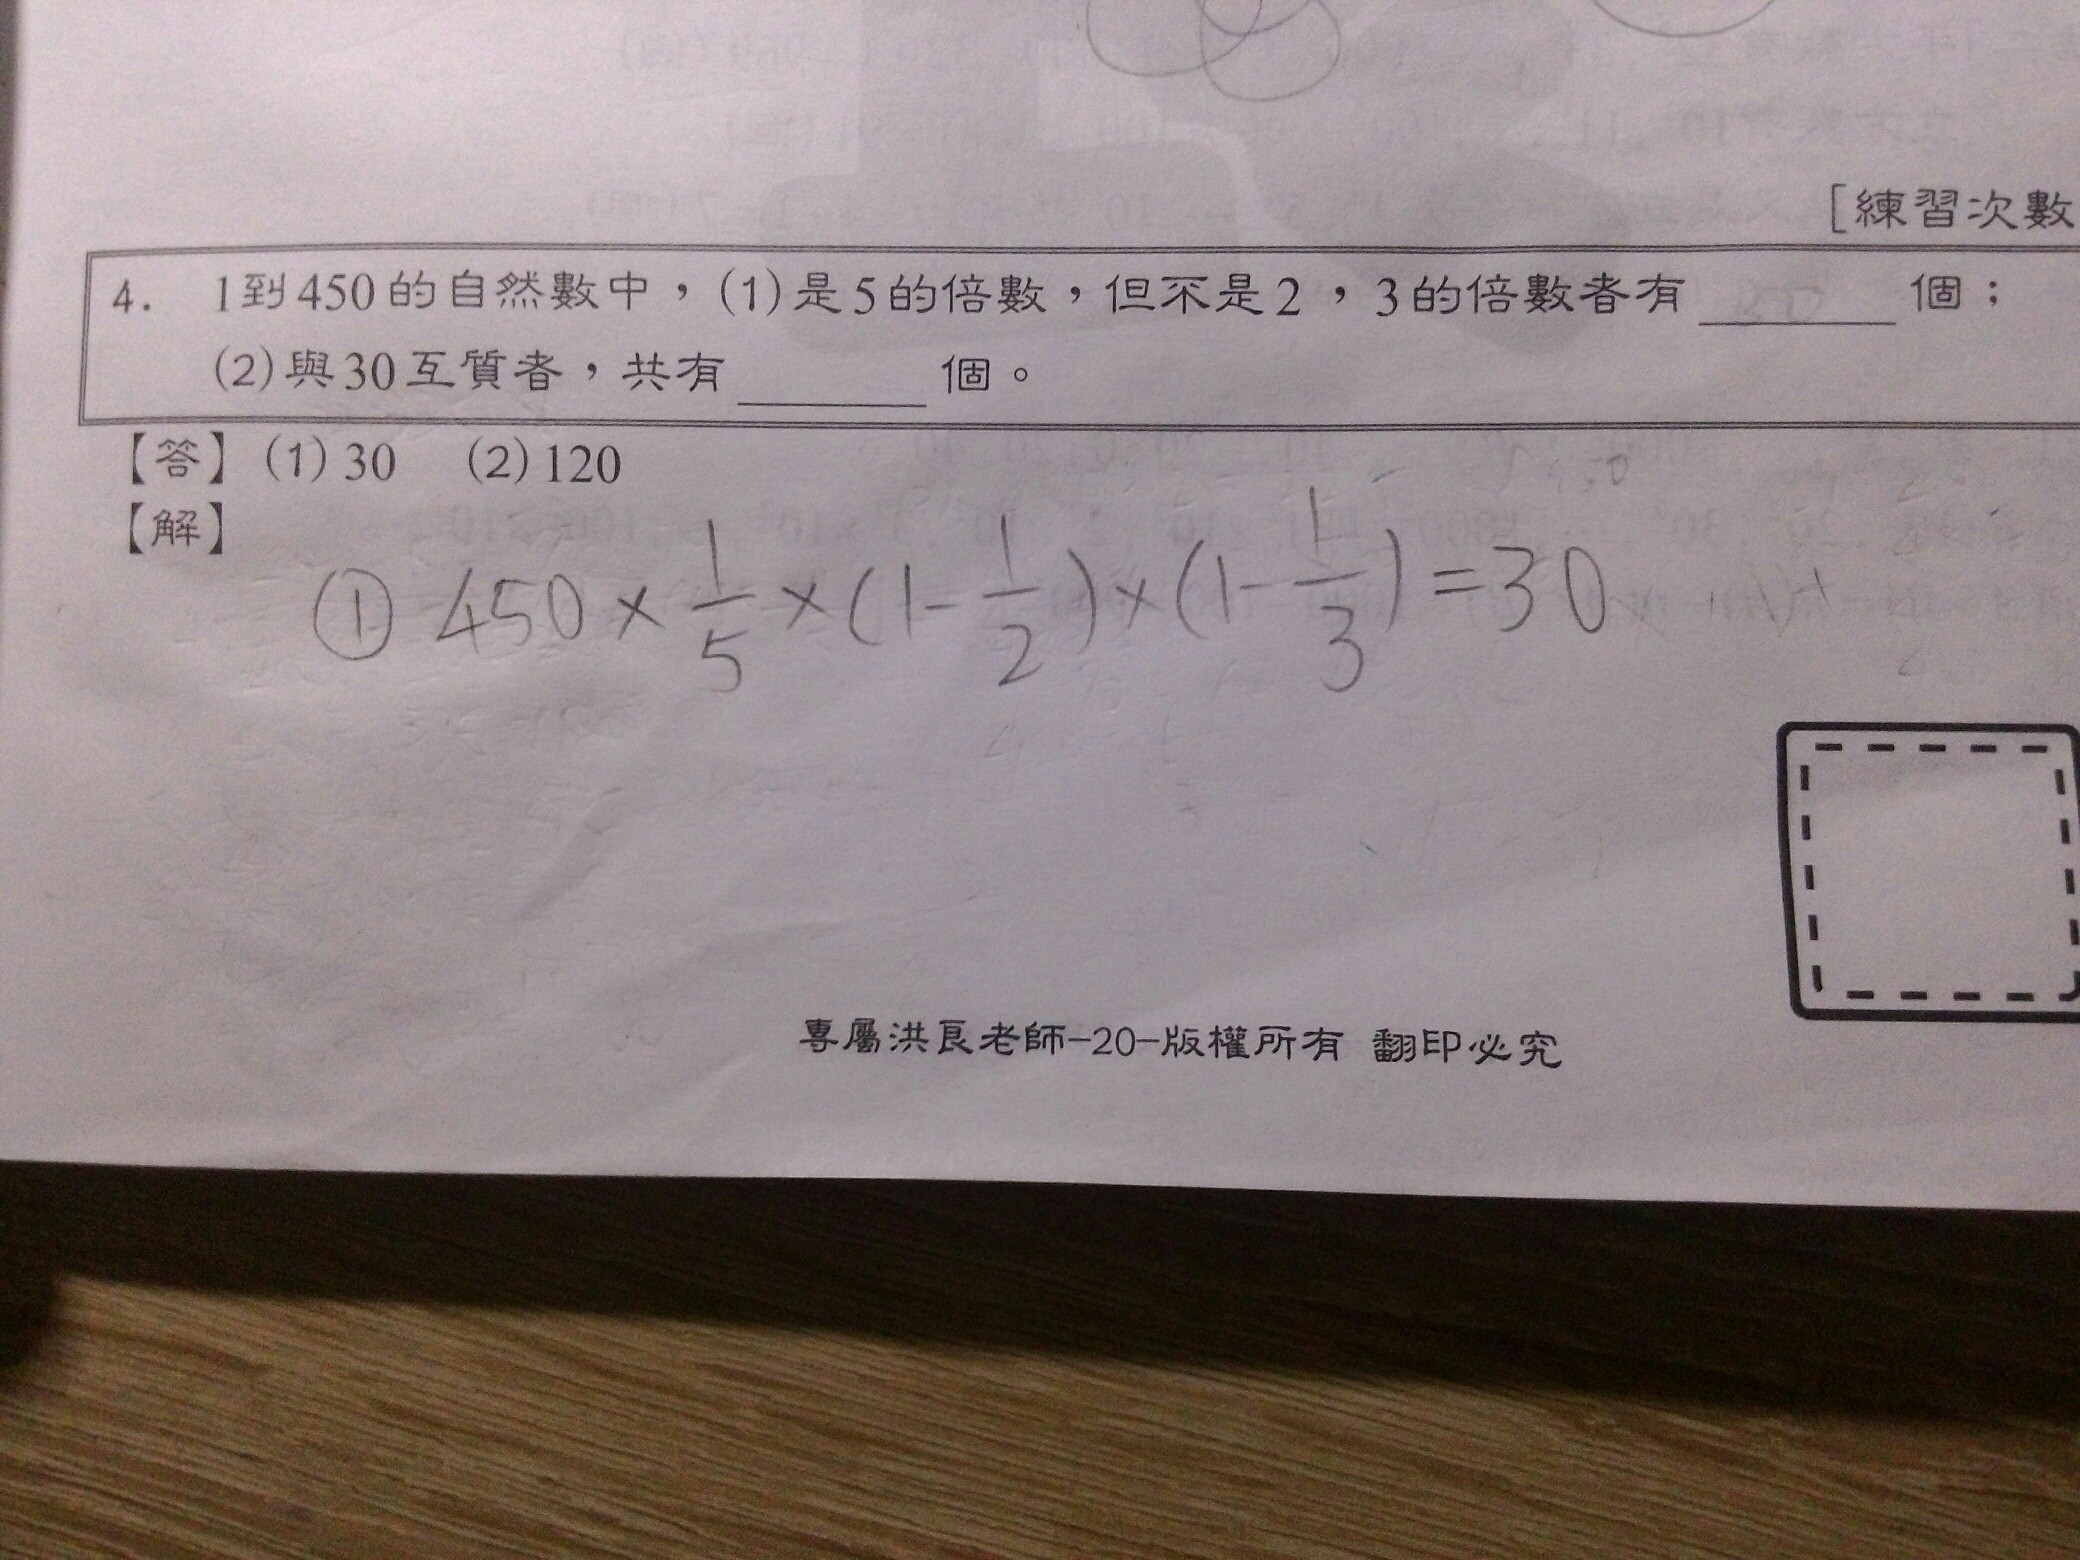 [練習次數
4. 1到450的自然數中，(1)是5的倍數，但不是2，3的倍數者有______個；
(2)與30互質者，共有______個。
【答】(1)30 (2)120
【解】
① 450×1/5×(1-1/2)×(1-1/3)=30
專屬洪良老師-20-版權所有 翻印必究